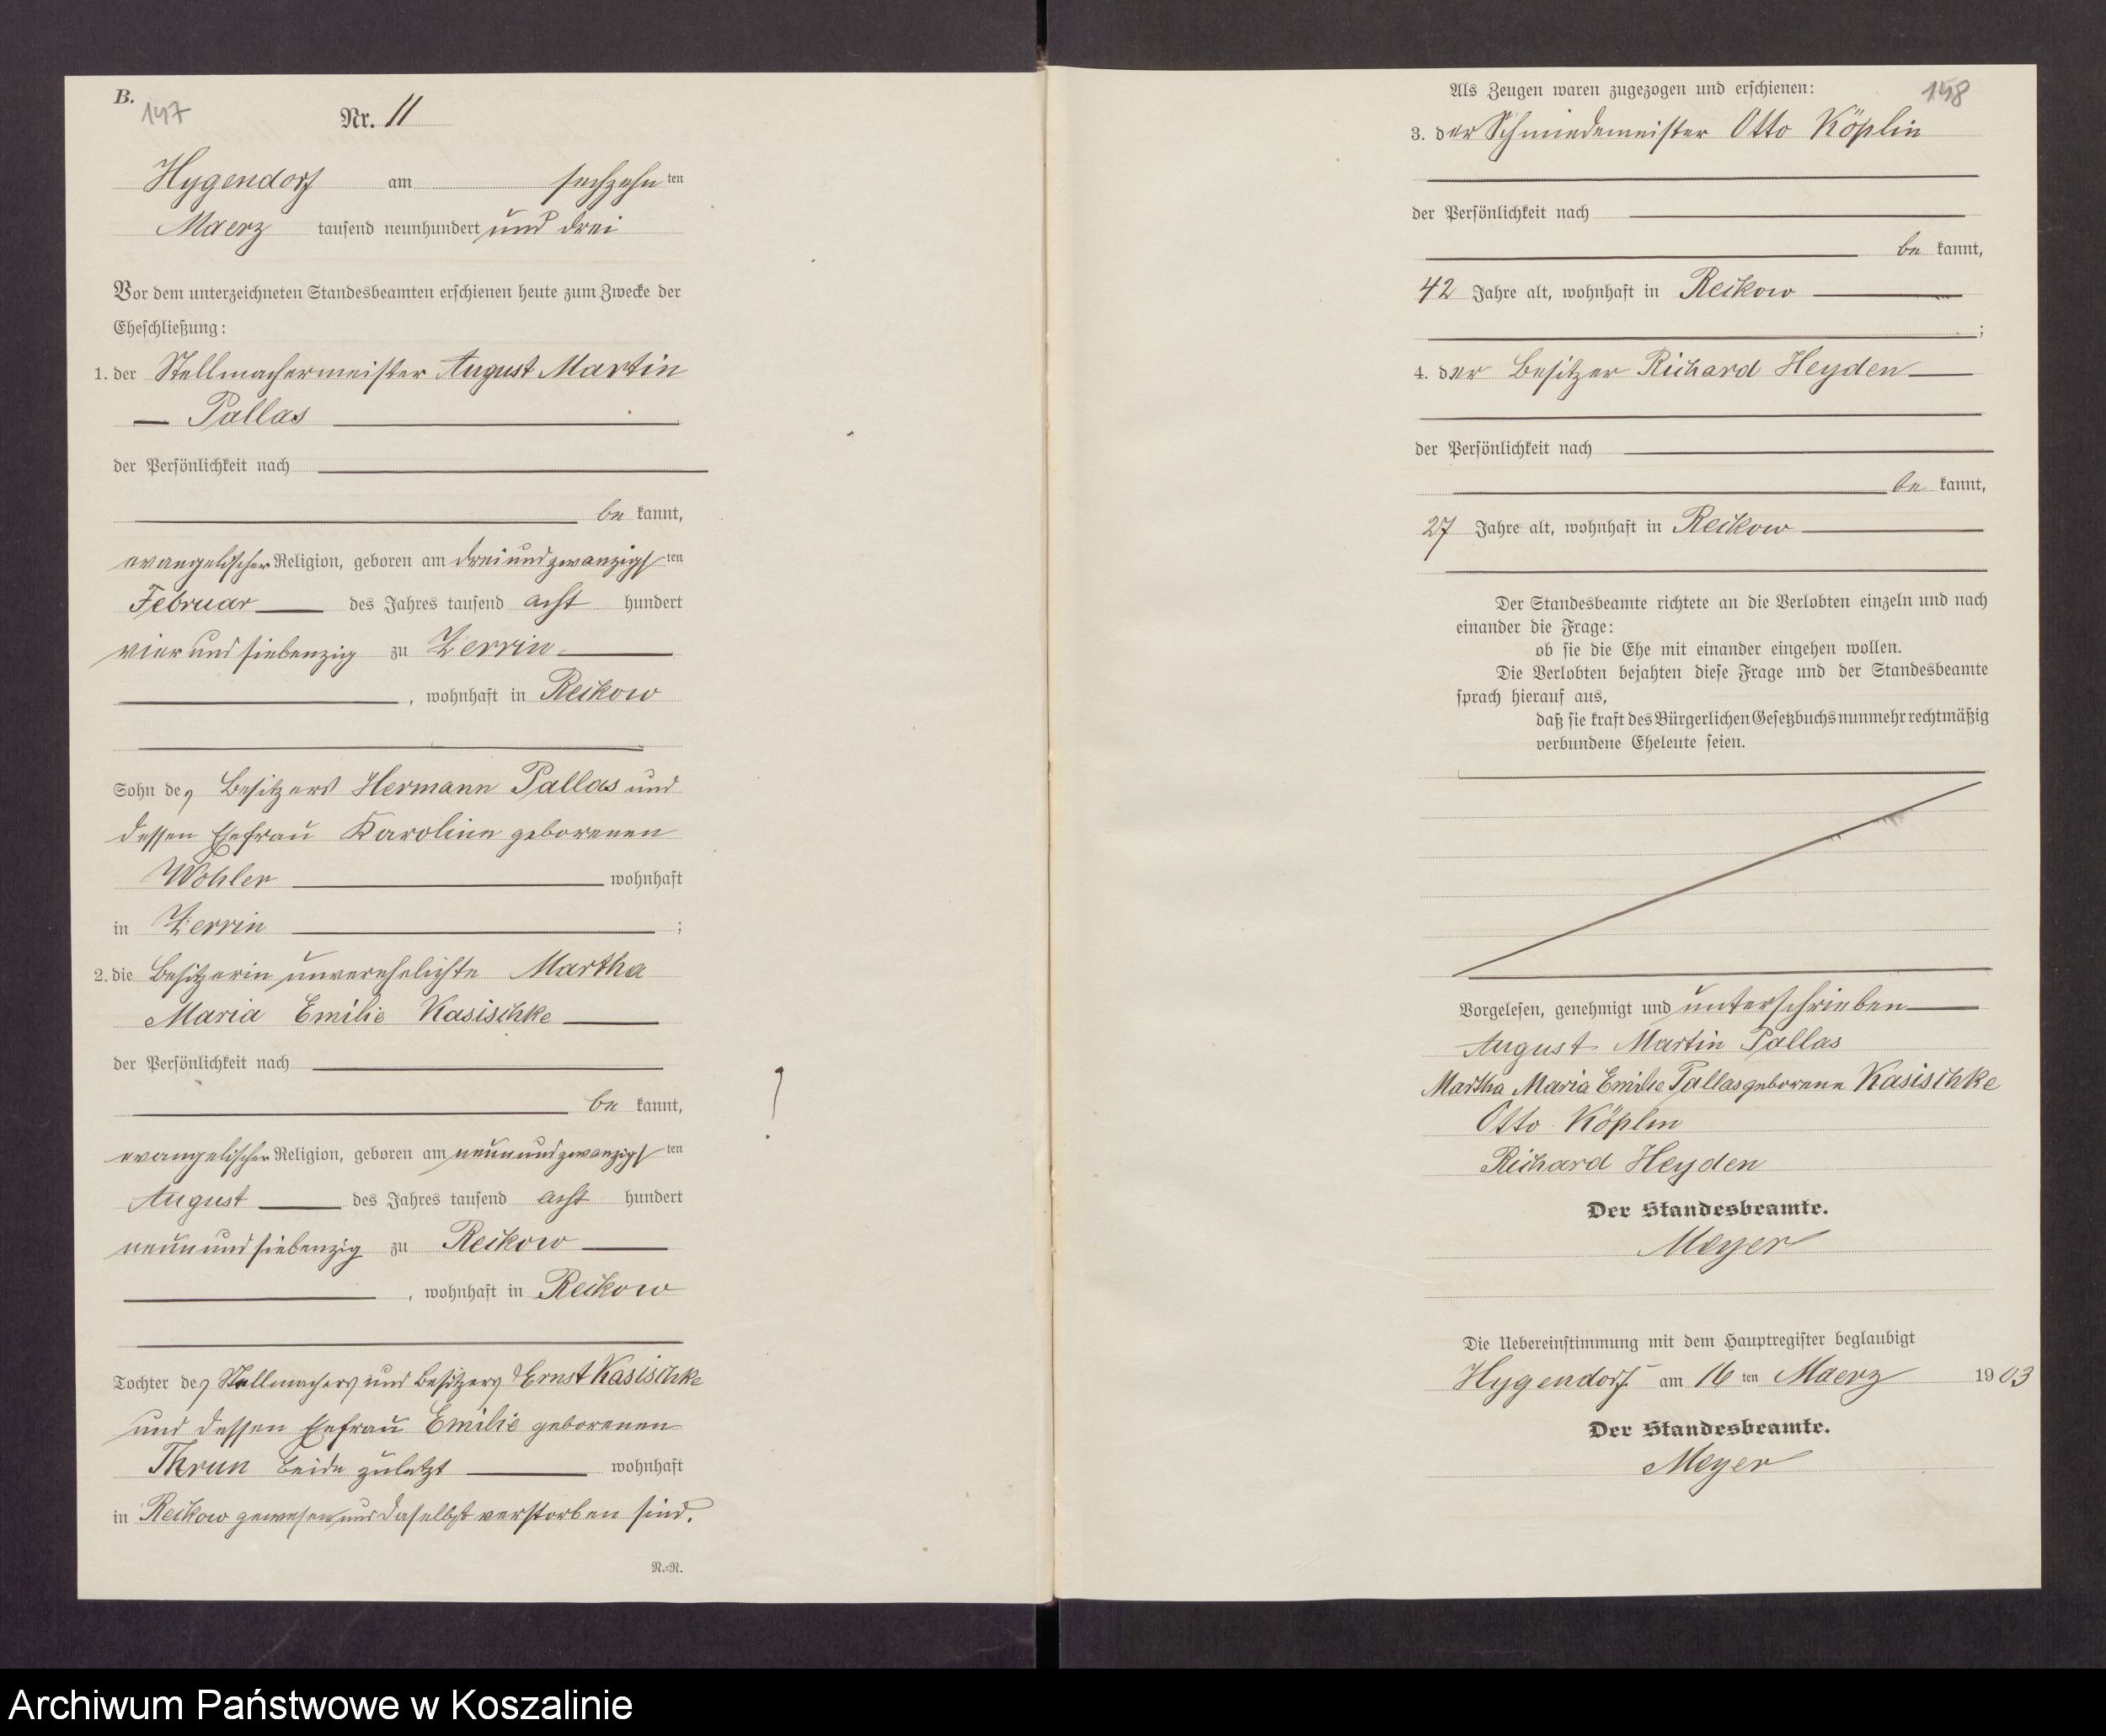 B.
147
Nr. 11
Hygendorf am sechzehnten
Maerz tausend neunhundert und drei
Vor dem unterzeichneten Standesbeamten erschienen heute zum Zwecke der
Eheschließung:
1. der Stellmachermeister August Martin
Pallas
der Persönlichkeit nach
be kannt,
evangelischer Religion, geboren am dreiundzwanzigsten
Februar des Jahres tausend acht hundert
vier und siebenzig zu Zerrin
, wohnhaft in Reikow
Sohn des Besitzers Hermann Pallas und
dessen Ehefrau Karoline geborenen
Wohler wohnhaft
in Zerrin ;
2. die Besitzerin unverehelichte Martha
Maria Emilie Kasischke
der Persönlichkeit nach
be kannt,
evangelischer Religion, geboren am neunundzwanzigsten
August des Jahres tausend acht hundert
neun und siebenzig zu Reikow
, wohnhaft in Reikow
Tochter des Stellmachers und Besitzers Ernst Kasischke
und dessen Ehefrau Emilie geborenen
Thrun beide zuletzt wohnhaft
in Reikow gewesen und daselbst verstorben sind.
N.=N.
148
Als Zeugen waren zugezogen und erschienen:
3. der Schmiedemeister Otto Köplin
der Persönlichkeit nach
be kannt,
42 Jahre alt, wohnhaft in Reikow
;
4. der Besitzer Richard Heyden
der Persönlichkeit nach
be kannt,
27 Jahre alt, wohnhaft in Reikow
Der Standesbeamte richtete an die Verlobten einzeln und nach
einander die Frage:
ob sie die Ehe mit einander eingehen wollen.
Die Verlobten bejahten diese Frage und der Standesbeamte
sprach hierauf aus,
daß sie kraft des Bürgerlichen Gesetzbuchs nunmehr rechtmäßig
verbundene Eheleute seien.
Vorgelesen, genehmigt und unterschrieben
August Martin Pallas
Martha Maria Emilie Pallas geborene Kasischke
Otto Köplin
Richard Heyden
Der Standesbeamte.
Meyer
Die Uebereinstimmung mit dem Hauptregister beglaubigt
Hygendorf am 16 ten Maerz 1903
Der Standesbeamte.
Meyer
Archiwum Państwowe w Koszalinie